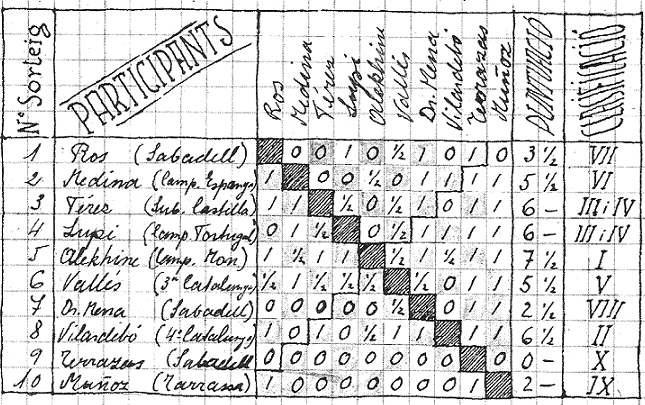 Nº Sorteig PARTICIPANTS Ros Medina Térez Lupi Alekhine Vallés Dr. Mena Vilardebó Terrazas Muñoz PUNTUACIÓ CLASSIFICACIÓ
1 Ros (Sabadell) 0 0 1 0 ½ 1 0 1 0 3 ½ VII
2 Medina (Camp. Espanya) 1 0 0 ½ 0 1 1 1 1 5 ½ VI
3 Térez (Sub. Castilla) 1 1 ½ 0 ½ 1 0 1 1 6 – III i IV
4 Lupi (Camp. Portugal) 0 1 ½ 0 ½ 1 1 1 1 6 – III i IV
5 Alekhine (Camp. Mon) 1 ½ 1 1 ½ 1 ½ 1 1 7 ½ I
6 Vallés (3er Catalunya) ½ 1 ½ ½ ½ ½ 0 1 1 5 ½ V
7 Dr. Mena (Sabadell) 0 0 0 0 0 ½ 0 1 1 2 ½ VIII
8 Vilardebó (4t Catalunya) 1 0 1 0 ½ 1 1 1 1 6 ½ II
9 Terrazas (Sabadell 0 0 0 0 0 0 0 0 0 0 – X
10 Muñoz (Tarrasa) 1 0 0 0 0 0 0 0 1 2 – IX